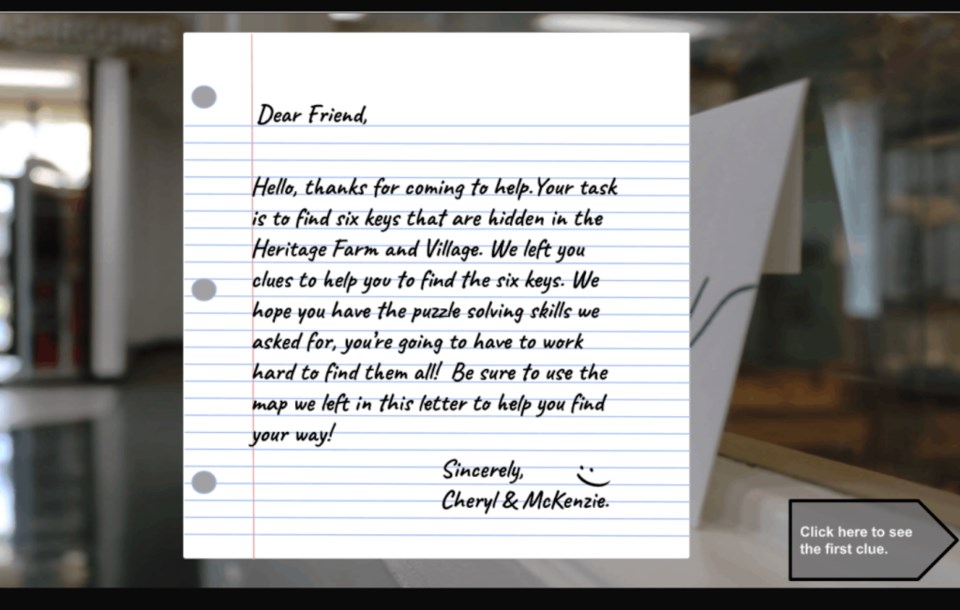 Dear Friend,
Hello, thanks for coming to help.Your task
is to find six keys that are hidden in the
Heritage Farm and Village. We left you
clues to help you to find the six keys. We
hope you have the puzzle solving skills we
asked for, you're going to have to work
hard to find them all! Be sure to use the
map we left in this letter to help you find
your way!
Sincerely,
Cheryl & McKenzie.
Click here to see
the first clue.